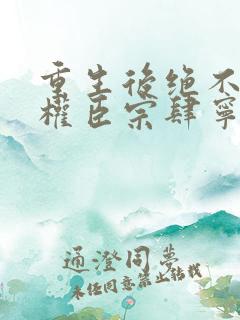 重生後绝不
權臣宗肆寧
通澄同夢
未任同意禁止转载